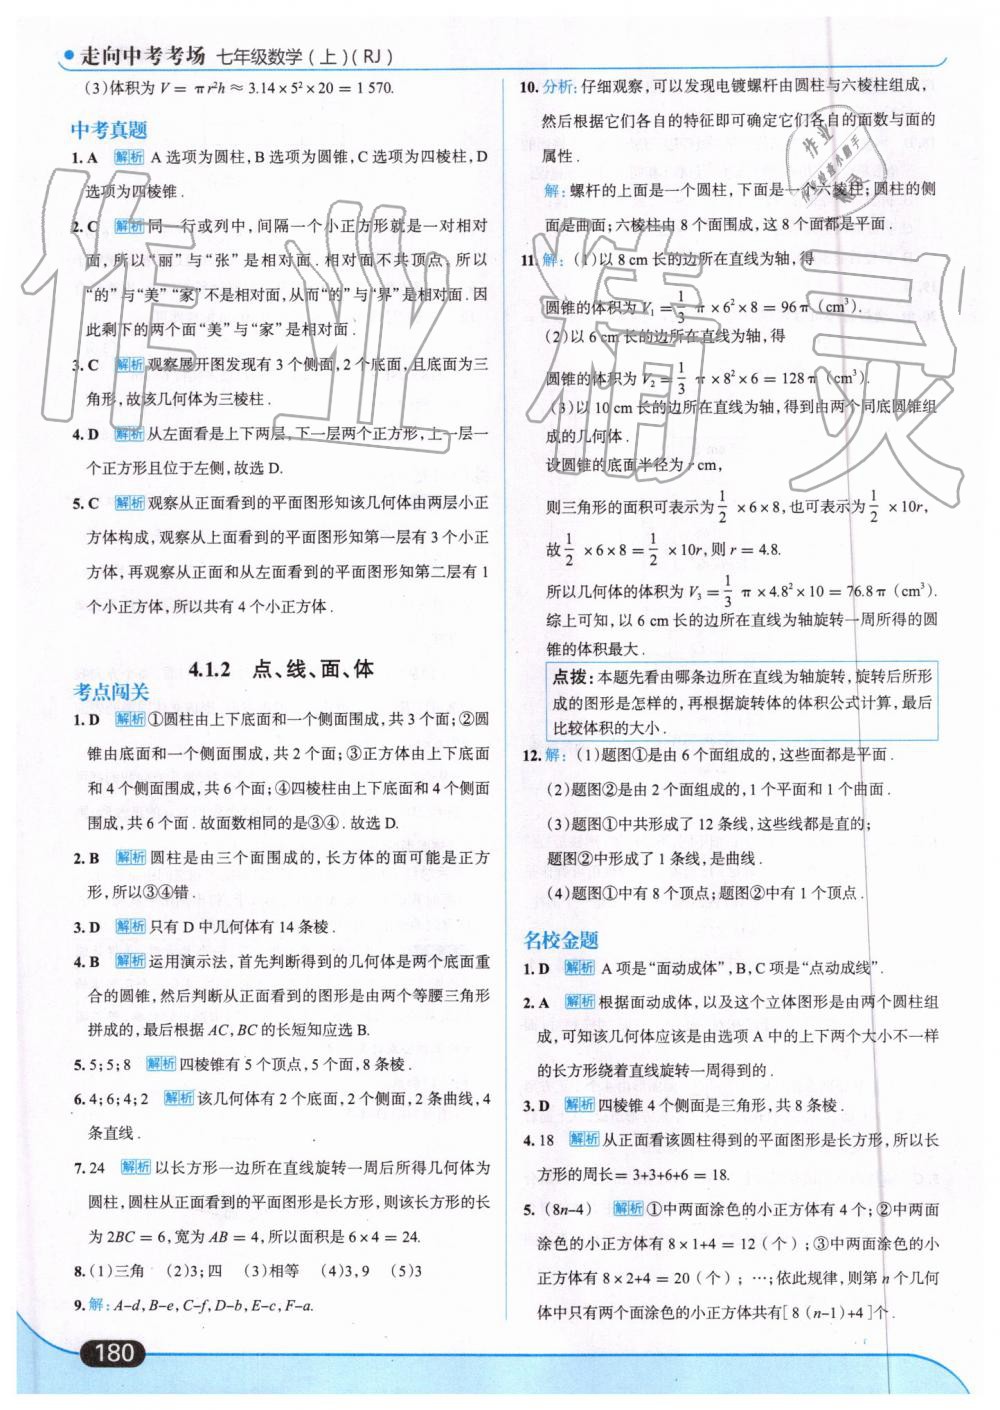 走向中考考场 七年级数学(上)(RJ)
(3)体积为 V = πr²h ≈ 3.14 × 5² × 20 = 1 570.
中考真题
1. A 解析 A 选项为圆柱,B 选项为圆锥,C 选项为四棱柱,D
选项为四棱锥.
2. C 解析 同一行或列中,间隔一个小正方形就是一对相对
面,所以“丽”与“张”是相对面.相对面不共顶点,所以
“的”与“美”“家”不是相对面,“的”与“界”是相对面.因
此剩下的两个面“美”与“家”是相对面.
3. C 解析 观察展开图发现有 3 个侧面,2 个底面,且底面为三
角形,故该几何体为三棱柱.
4. D 解析 从左面看是上下两层,下一层两个正方形,上一层一
个正方形且位于左侧,故选 D.
5. C 解析 观察从正面看到的平面图形知该几何体由两层小正
方体构成,观察从上面看到的平面图形知第一层有 3 个小正
方体,再观察从正面和从左面看到的平面图形知第二层有 1
个小正方体,所以共有 4 个小正方体.
4.1.2 点、线、面、体
考点闯关
1. D 解析 ①圆柱由上下底面和一个侧面围成,共 3 个面;②圆
锥由底面和一个侧面围成,共 2 个面;③正方体由上下底面
和 4 个侧面围成,共 6 个面;④四棱柱由上下底面和 4 个侧面
围成,共 6 个面.故面数相同的是③④.故选 D.
2. B 解析 圆柱是由三个面围成的,长方体的面可能是正方
形,所以③④错.
3. D 解析 只有 D 中几何体有 14 条棱.
4. B 解析 运用演示法,首先判断得到的几何体是两个底面重
合的圆锥,然后判断从正面看到的图形是由两个等腰三角形
拼成的,最后根据 AC,BC 的长短知应选 B.
5. 5;5;8 解析 四棱锥有 5 个顶点,5 个面,8 条棱.
6. 4;6;4;2 解析 该几何体有 2 个底面,2 个侧面,2 条曲线,4
条直线.
7. 24 解析 以长方形一边所在直线旋转一周后所得几何体为
圆柱,圆柱从正面看到的平面图形是长方形,则该长方形的长
为 2BC = 6,宽为 AB = 4,所以面积是 6 × 4 = 24.
8. (1)三角 (2)3;四 (3)相等 (4)3,9 (5)3
9. 解:A–d,B–e,C–f,D–b,E–c,F–a.
10. 分析:仔细观察,可以发现电镀螺杆由圆柱与六棱柱组成,
然后根据它们各自的特征即可确定它们各自的面数与面的
属性.
解:螺杆的上面是一个圆柱,下面是一个六棱柱;圆柱的侧
面是曲面;六棱柱由 8 个面围成,这 8 个面都是平面.
11. 解:(1)以 8 cm 长的边所在直线为轴,得
圆锥的体积为 V₁ = 1/3 π × 6² × 8 = 96π(cm³).
(2)以 6 cm 长的边所在直线为轴,得
圆锥的体积为 V₂ = 1/3 π × 8² × 6 = 128π(cm³).
(3)以 10 cm 长的边所在直线为轴,得到由两个同底圆锥组
成的几何体.
设圆锥的底面半径为 r cm,
则三角形的面积可表示为 1/2 × 6 × 8,也可表示为 1/2 × 10r,
故 1/2 × 6 × 8 = 1/2 × 10r,则 r = 4.8.
所以几何体的体积为 V₃ = 1/3 π × 4.8² × 10 = 76.8π(cm³).
综上可知,以 6 cm 长的边所在的直线为轴旋转一周所得的圆
锥的体积最大.
点拨:本题先看由哪条边所在直线为轴旋转,旋转后所形
成的图形是怎样的,再根据旋转体的体积公式计算,最后
比较体积的大小.
12. 解:(1)题图①是由 6 个面组成的,这些面都是平面.
(2)题图②是由 2 个面组成的,1 个平面和 1 个曲面.
(3)题图①中共形成了 12 条线,这些线都是直的;
题图②中形成了 1 条线,是曲线.
(4)题图①中有 8 个顶点;题图②中有 1 个顶点.
名校金题
1. D 解析 A 项是“面动成体”,B,C 项是“点动成线”.
2. A 解析 根据面动成体,以及这个立体图形是由两个圆柱组
成,可知该几何体应该是由选项 A 中的上下两个大小不一样
的长方形绕着直线旋转一周得到的.
3. D 解析 四棱锥 4 个侧面是三角形,共 8 条棱.
4. 18 解析 从正面看该圆柱得到的平面图形是长方形,所以长
方形的周长= 3+3+6+6 = 18.
5. (8n–4) 解析 ①中两面涂色的小正方体有 4 个;②中两面
涂色的小正方体有 8 × 1+4 = 12(个);③中两面涂色的小正
方体有 8 × 2+4 = 20(个);…;依此规律,则第 n 个几何
体中只有两个面涂色的小正方体共有[8(n–1)+4]个.
180
作业精灵